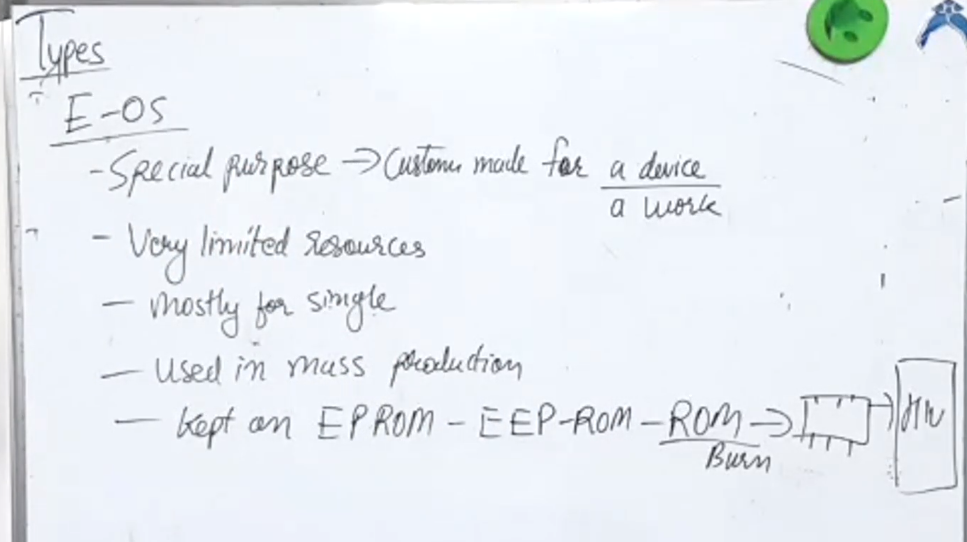 Types
E-OS
- Special purpose → Custom made for a device
a work
- Very limited resources
- Mostly for single
- Used in mass production
- Kept on EPROM - EEP-ROM - ROM → → HW
Burn